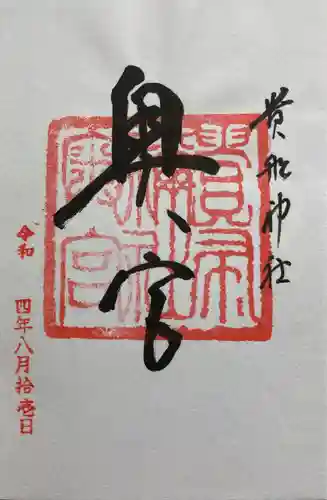 貴船神社
奥宮
令和四年八月拾壱日